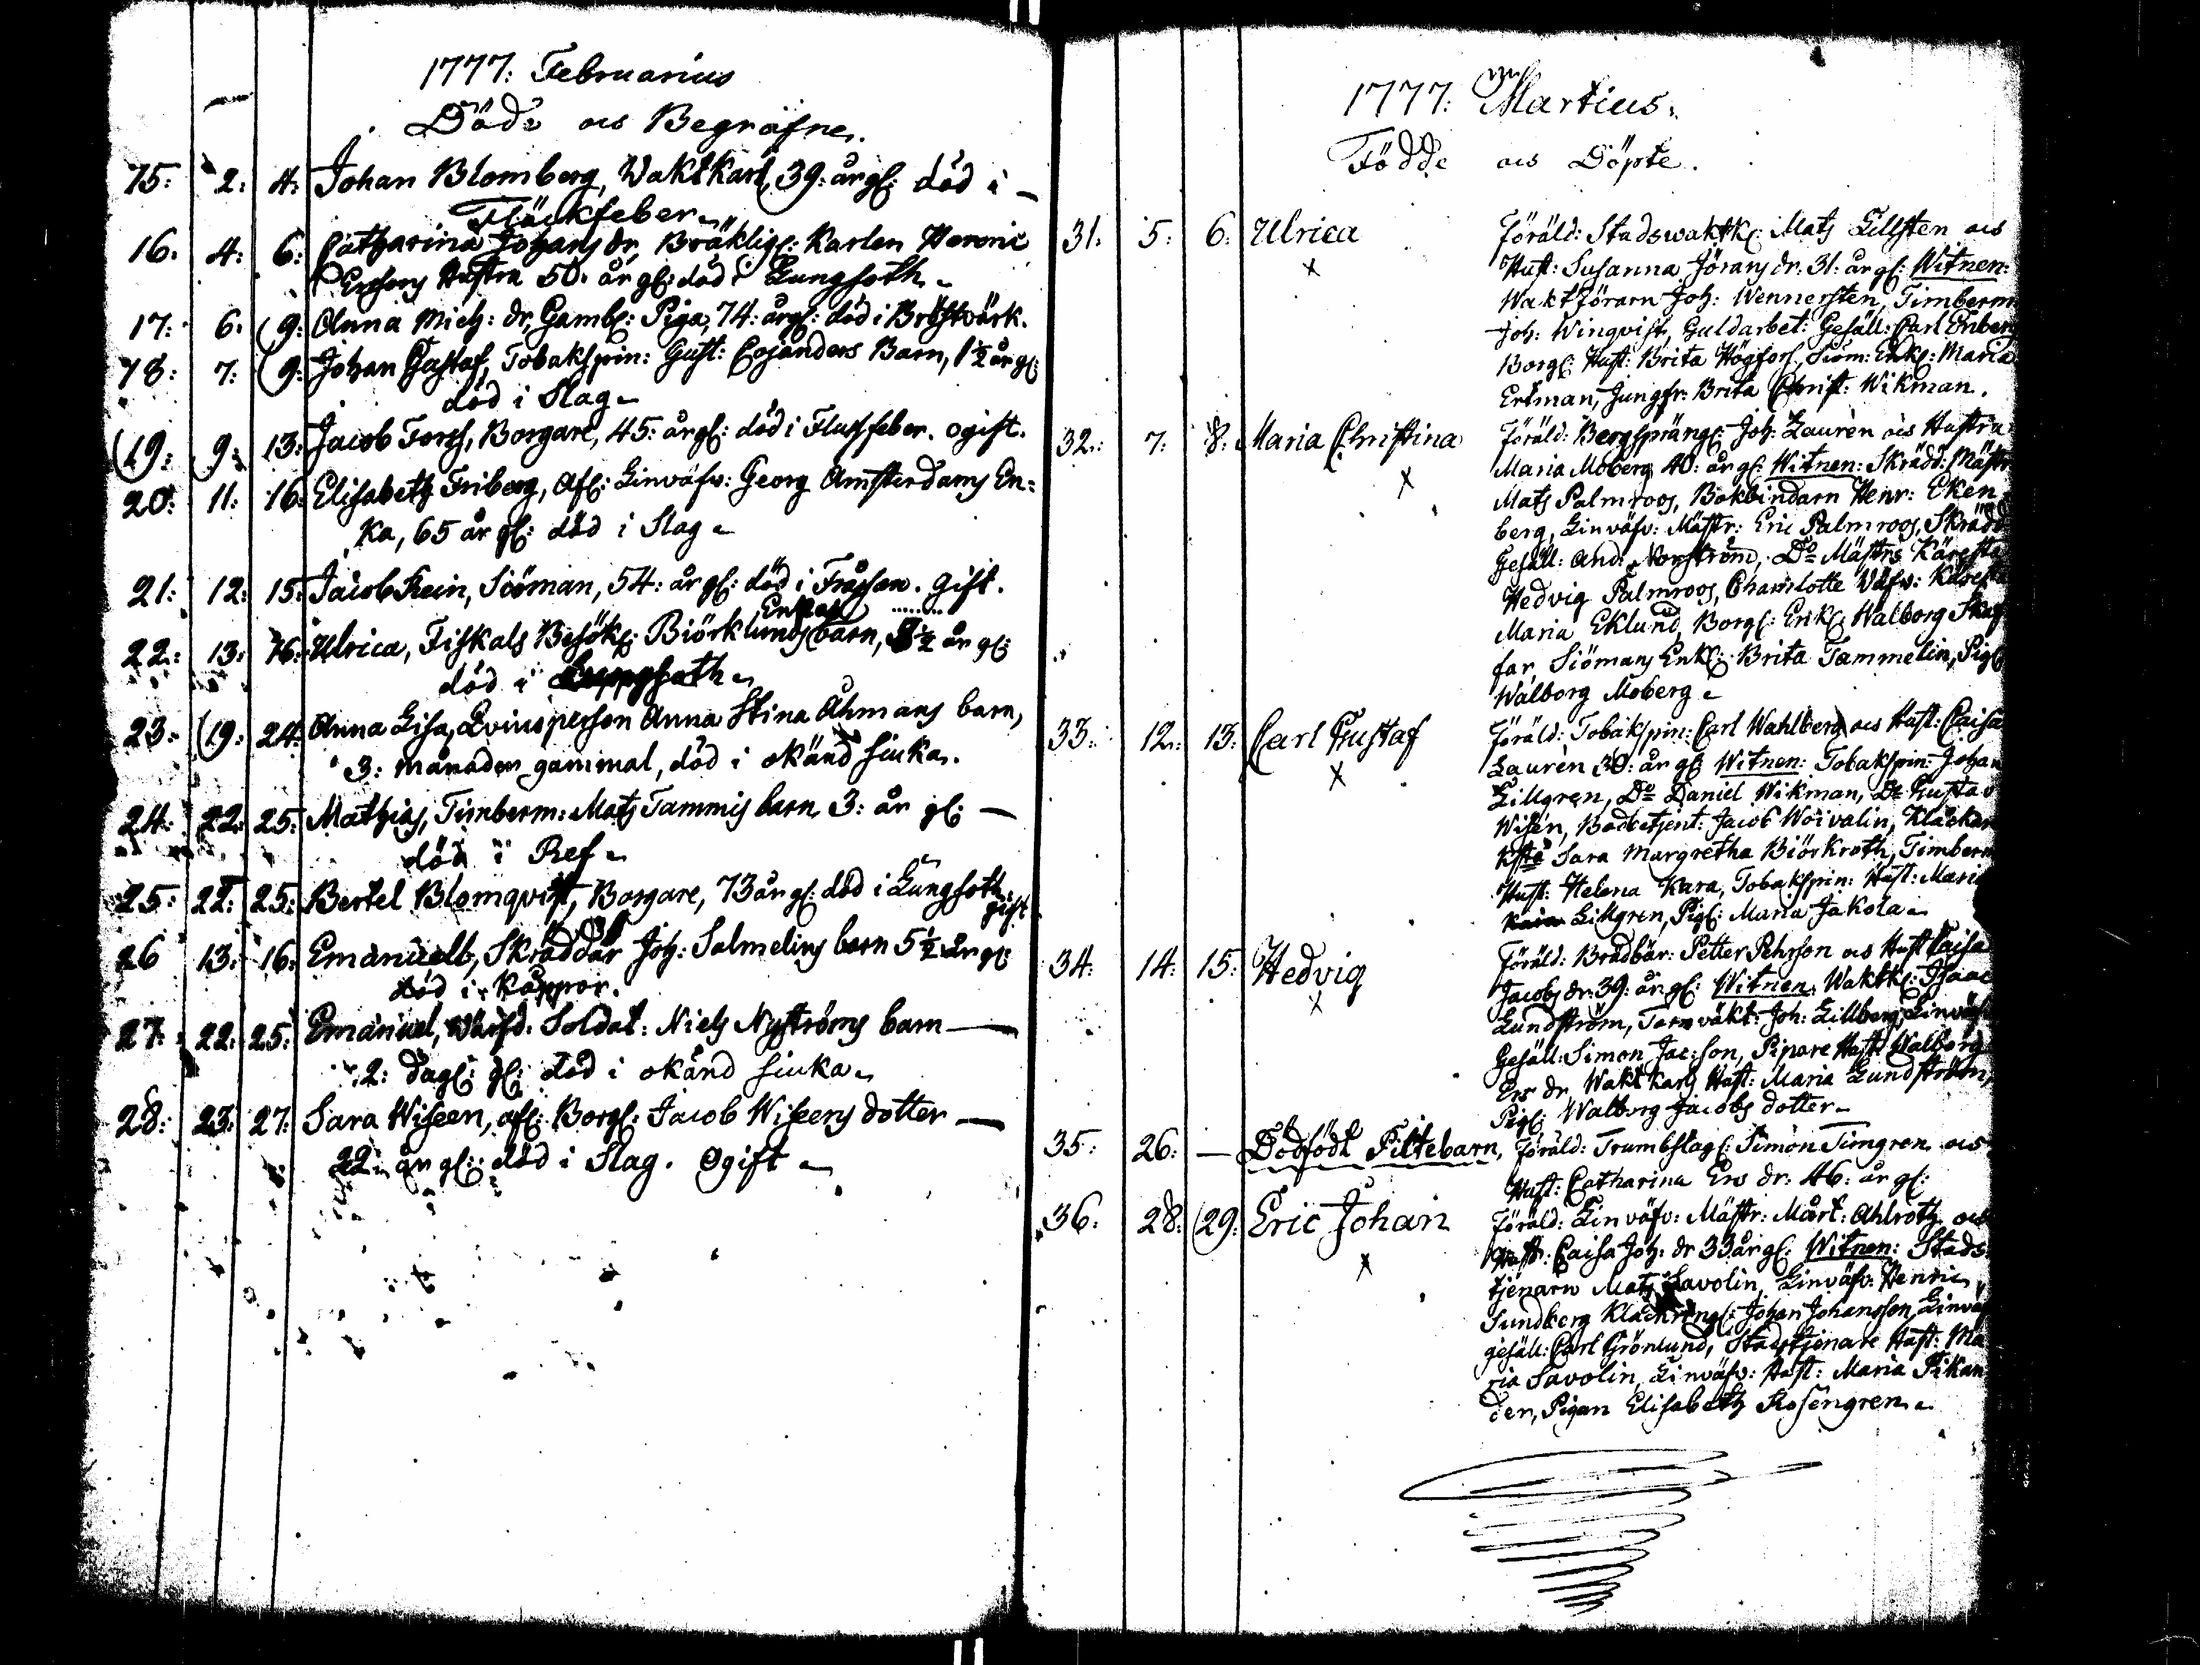 1777: Februarius
Döde och Begrafne.
15: 2: 4: Johan Blomberg, Waktkarl, 39: år gl: död i –
Fläckfeber.
16. 4: 6: Catharina Johans dr, Bräklig: Karlen Henric
Erssons Hustru 50. år gl: död i Lungsoth.
17: 6: 9: Anna Mich: dr, Gaml: Piga, 74: år gl: död i Bröstvärk.
18: 7: 9: Johan Gustaf, Tobakspin: Gust: Cojanders Barn, 1½ år gl:
död i Slag.
19: 9: 13: Jacob Forss, Borgare, 45: år gl: död i Flussfeber. ogift.
20: 11: 16: Elisabeth Friberg, Afl: Linväfv: Georg Amsterdams En=
ka, 65 år gl: död i Slag.
21: 12: 15: Jacob Siöman, 54: år gl: död i Fråssan. gift.
Enkas
22: 13: 16: Ulrica, Fiskals Besök: Biörklunds barn, ½ år gl:
död i
23: 19: 24: Anna Lisa, Qvinsperson Anna Stina Åhmans barn,
3: månader gammal, död i okänd siuka.
24: 22: 25: Mathias, Timberm: Mats Tammis barn 3: år gl: –
död i Ref.
25: 22: 25: Bertel Blomqvist, Borgare, 73 år gl: död i Lungsoth.
gift
26 13: 16: Emanuel, Skräddar Joh: Salmelins barn 5½ år gl:
död i Kåppor.
27: 22: 25: Emanuel, Soldat: Niels Nyströms barn –
2: dag: gl: död i okänd siuka.
28: 23: 27: Sara Wiseen, afl: Borg: Jacob Wiseens dotter –
22: år gl: död i Slag. Ogift.
1777: Martius.
Födde och Döpte.
31. 5: 6: Ulrica Föräld: Stadswaktk: Mats Lillsten och
x Hust: Susanna Jörans dr: 31: år gl: Witnen:
Waktförarn Joh: Wennersten, Timberm
Joh: Winqvist, Guldarbet: Gesäll: Carl Enberg
Borg: Hust: Brita Högfors, Siöm: Enk: Maria
Ertman, Jungfr: Brita Christ: Wikman.
32: 7: 8: Maria Christina Föräld: Bergspräng: Joh: Laurèn och Hustru
x Maria Moberg 40: år gl: Witnen: Skrädd: Mästr
Mats Palmroos, Bokbindarn Henr: Eken
berg, Linväfv: Mästr: Eric Palmroos, Skrädd
Gesäll: And: Norström, Do Mästrs Käresta
Hedvig Palmroos, Charlotte Väfv: Käresta
Maria Eklund, Borg: Enk: Walborg Skaf
far, Siömans Enk: Brita Tammelin, Pig:
Walborg Moberg.
33: 12: 13: Carl Gustaf Föräld: Tobakspin: Carl Wahlberg och Hust: Caisa
x Laurèn 30: år gl: Witnen: Tobakspin: Johan
Lillgren, Do Daniel Wikman, Do Gustav
Wisén, Jacob Woivalin, Klåckar
Sara Margretha Biörkroth, Timberm
Hust: Helena Kara, Tobakspin: Hust: Maria
Lillgren, Pig: Maria Jakola.
34: 14: 15: Hedvig Föräld: Brädbär: Petter Pehrson och Hust Caisa
x Jacobs dr: 39: år gl: Witnen: Waktk: Isaac
Lundström, Tornväkt: Joh: Lillberg, Linväfv
Gesäll: Simon Jac:son, Pipare Hust: Walborg
Ers dr Waktkarls Hust: Maria Lundström,
Pig: Walborg Jacobs dotter.
35: 26: – Dödfödt Piltebarn, Föräld: Trumbslag: Simon Timgren och
Hust: Catharina Ers dr: 46: år gl:
36: 28: 29: Eric Johan Föräld: Linväfv: Mästr: Mårt: Ahlroth och
x Hust: Caisa Joh: dr 33 år gl: Witnen: Stads
tjenarn Mats Savolin, Linväfv: Henric
Sundberg Johan Johansson, Linväf
gesäll: Carl Grönlund, Stadstjenare Hust: Ma
ria Savolin, Linväfv: Hust: Maria Pikan
der, Pigan Elisabeth Rosengren.